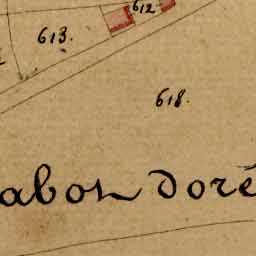 612
613.
618.
abot doré